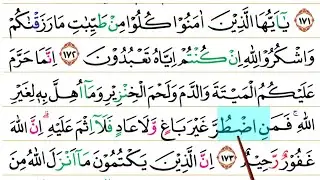 ١٧١ يٰٓاَيُّهَا الَّذِيْنَ اٰمَنُوْا كُلُوْا مِنْ طَيِّبٰتِ مَا رَزَقْنٰكُمْ
وَاشْكُرُوْا لِلّٰهِ اِنْ كُنْتُمْ اِيَّاهُ تَعْبُدُوْنَ ١٧٢ اِنَّمَا حَرَّمَ
عَلَيْكُمُ الْمَيْتَةَ وَالدَّمَ وَلَحْمَ الْخِنْزِيْرِ وَمَآ اُهِلَّ بِهٖ لِغَيْرِ
اللّٰهِ ۚ فَمَنِ اضْطُرَّ غَيْرَ بَاغٍ وَّلَا عَادٍ فَلَآ اِثْمَ عَلَيْهِ ۗ اِنَّ اللّٰهَ
غَفُوْرٌ رَّحِيْمٌ ١٧٣ اِنَّ الَّذِيْنَ يَكْتُمُوْنَ مَآ اَنْزَلَ اللّٰهُ مِنَ